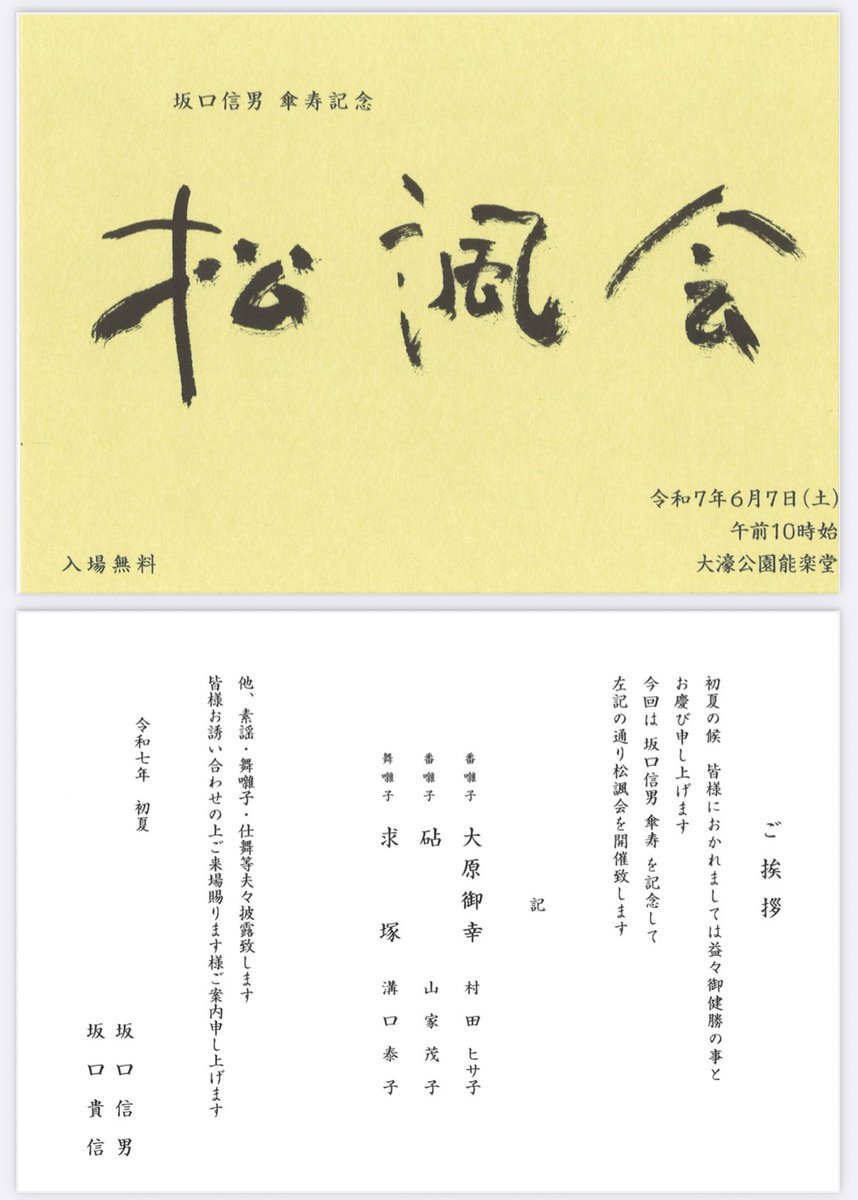 坂口信男 傘寿記念
松諷会
令和7年6月7日(土)
午前10時始
大濠公園能楽堂
入場無料
ご挨拶
初夏の候 皆様におかれましては益々御健勝の事と
お慶び申し上げます
今回は 坂口信男 傘寿 を記念して
左記の通り松諷会を開催致します
記
番囃子 大原御幸 村田ヒサ子
番囃子 砧 山家茂子
舞囃子 求塚 溝口泰子
他、素謡・舞囃子・仕舞等夫々披露致します
皆様お誘い合わせの上ご来場賜ります様ご案内申し上げます
令和七年 初夏
坂口信男
坂口貴信